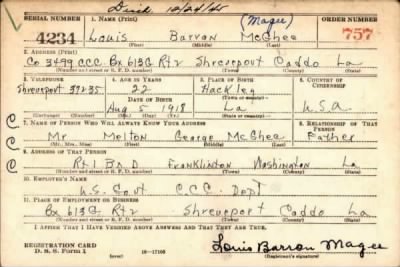 Died 10/24/45
SERIAL NUMBER 1. NAME (Print) (Magee) ORDER NUMBER
4234 Louis Barron McGhee 757
(First) (Middle) (Last)
2. ADDRESS (Print)
Co 3499 CCC Bx 613G Rt 2 Shreveport Caddo La
(Number and street or R. F. D. number) (Town) (County) (State)
3. TELEPHONE 4. AGE IN YEARS 5. PLACE OF BIRTH 6. COUNTRY OF CITIZENSHIP
Shreveport 39235 22 Hackley
DATE OF BIRTH (Town or county)
Aug 5 1918 La U.S.A
(Exchange) (Number) (Mo.) (Day) (Yr.) (State or country)
7. NAME OF PERSON WHO WILL ALWAYS KNOW YOUR ADDRESS 8. RELATIONSHIP OF THAT PERSON
Mr Melton George McGhee Father
(Mr., Mrs., Miss) (First) (Middle) (Last)
9. ADDRESS OF THAT PERSON
Rt 1 Franklinton Washington La
(Number and street or R. F. D. number) (Town) (County) (State)
10. EMPLOYER'S NAME
U.S. Govt C.C.C. Dept
11. PLACE OF EMPLOYMENT OR BUSINESS
Bx 613G Rt 2 Shreveport Caddo La
(Number and street or R. F. D. number) (Town) (County) (State)
I AFFIRM THAT I HAVE VERIFIED ABOVE ANSWERS AND THAT THEY ARE TRUE.
REGISTRATION CARD
D. S. S. Form 1 (over) 16—17105
Louis Barron Magee
(Registrant's signature)